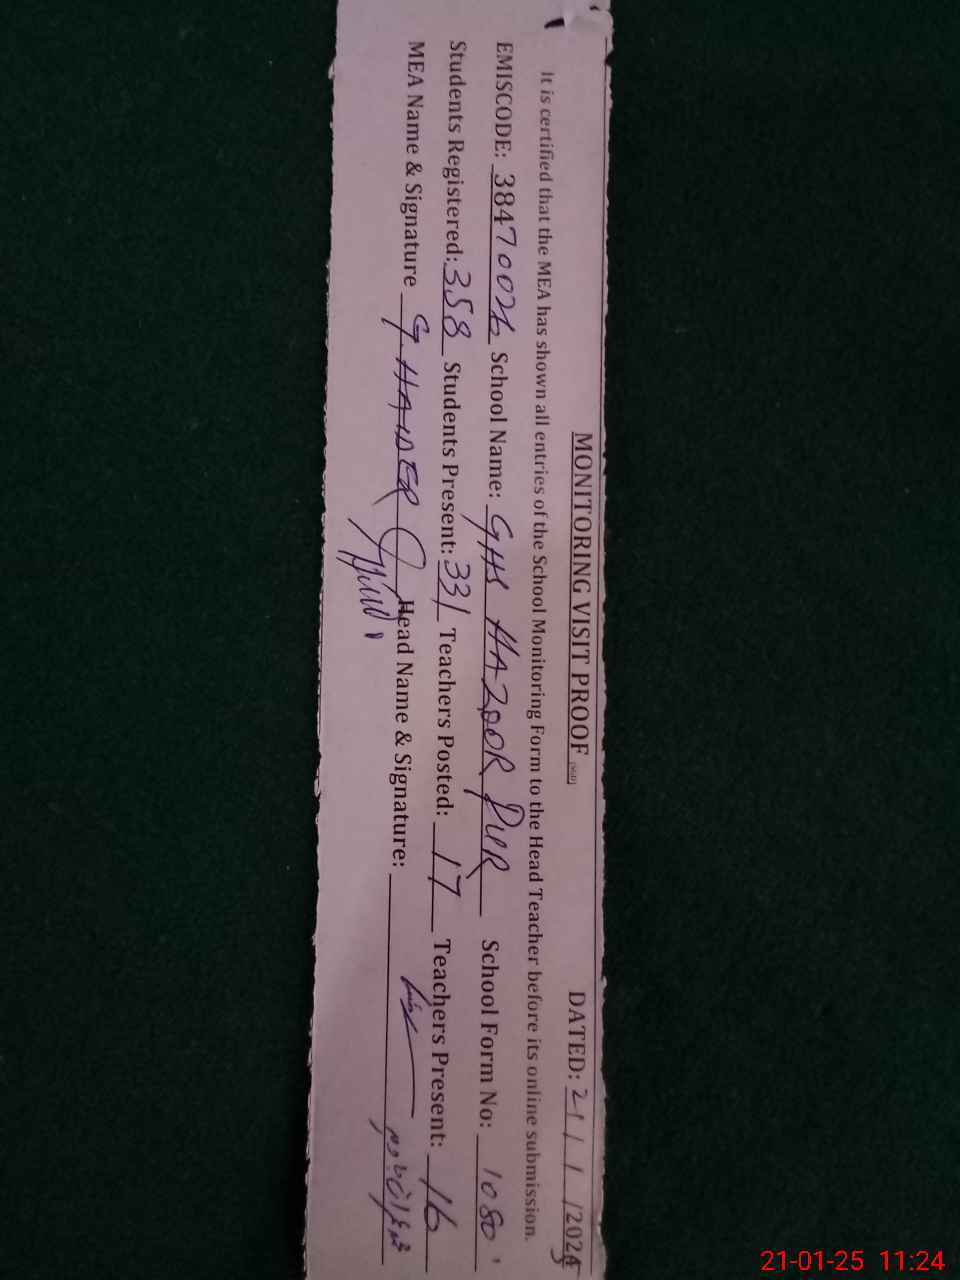 MONITORING VISIT PROOF DATED: 21/1/2025
It is certified that the MEA has shown all entries of the School Monitoring Form to the Head Teacher before its online submission.
EMISCODE: 38470026 School Name: GHS HAZOOR PUR School Form No: 1080
Students Registered: 358 Students Present: 331 Teachers Posted: 17 Teachers Present: 16
MEA Name & Signature G. HAIDER Head Name & Signature:
21-01-25 11:24